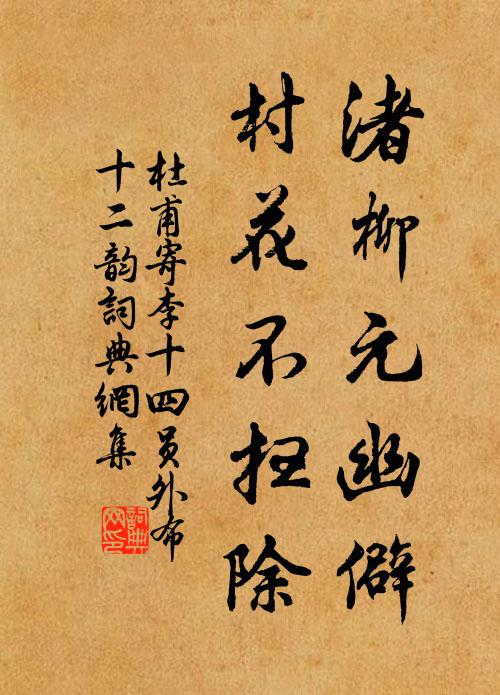 渚柳元幽僻
村花不扫除
杜甫寄李十四员外布
十二韵词典網集